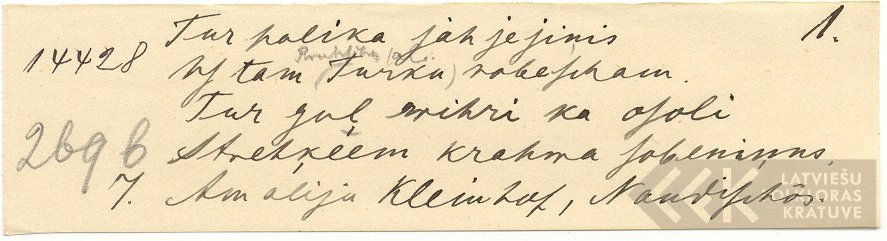 Tur palika jahjejinis 1.
14428
Us tam Turku robescham.
Tur guļ wihri ka osoli
2696 Strehķeem krahwa sobeninus.
7. Amalija Kleinhof, Naudischôs.
LATVIEŠU
FOLKLORAS
KRĀTUVE